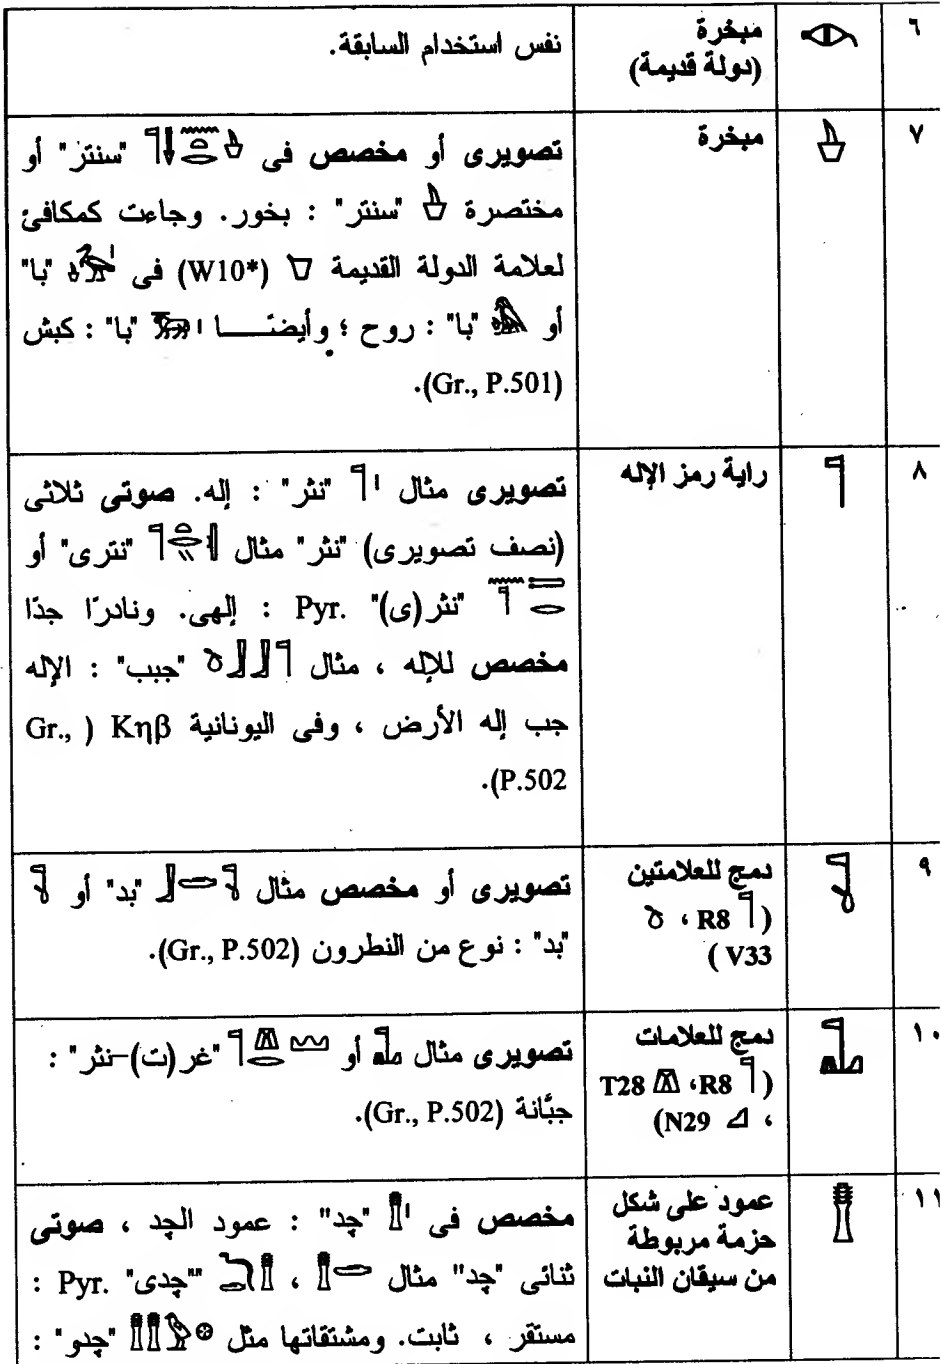 ٦
مبخرة
(دولة قديمة)
نفس استخدام السابقة.
٧
مبخرة
تصويرى أو مخصص فى 𓊹𓋴𓈖𓍿𓂋𓊸 "سنتر" أو
مختصرة 𓊸 "سنتر" : بخور. وجاءت كمكافئ
لعلامة الدولة القديمة (W10*) فى "با"
أو "با" : روح ؛ وأيضـًا "با" : كبش
(Gr., P.501).
٨
راية رمز الإله
تصويرى مثال 𓊹𓏤 "نثر" : إله. صوتى ثلاثى
(نصف تصويرى) "نثر" مثال "نترى" أو
"نثر(ى)" Pyr. : إلهى. ونادرًا جدًا
مخصص للإله ، مثال "جبب" : الإله
جب إله الأرض ، وفى اليونانية Κηβ ( Gr.,
P.502).
٩
دمج للعلامتين
(𓊹 R8 ، 𓎤
V33 )
تصويرى أو مخصص مثال "بد" أو 𓊺
"بد" : نوع من النطرون (Gr., P.502).
١٠
دمج للعلامات
(𓊹 R8، 𓌨 T28
، 𓈎 N29)
تصويرى مثال 𓊻 أو "غر(ت)-نثر" :
جبَّانة (Gr., P.502).
١١
عمود على شكل
حزمة مربوطة
من سيقان النبات
مخصص فى 𓊽𓏤 "چد" : عمود الچد ، صوتى
ثنائى "چد" مثال ، "چدى" Pyr. :
مستقر ، ثابت. ومشتقاتها مثل 𓊽𓊽𓅱𓊖 "چدو" :